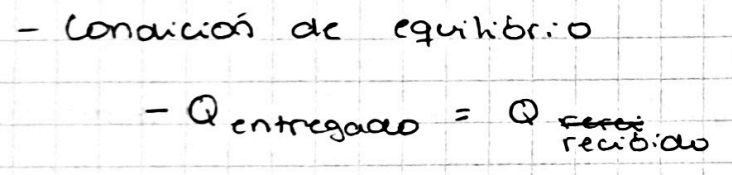 - Condición de equilibrio
- Q entregado = Q recibido